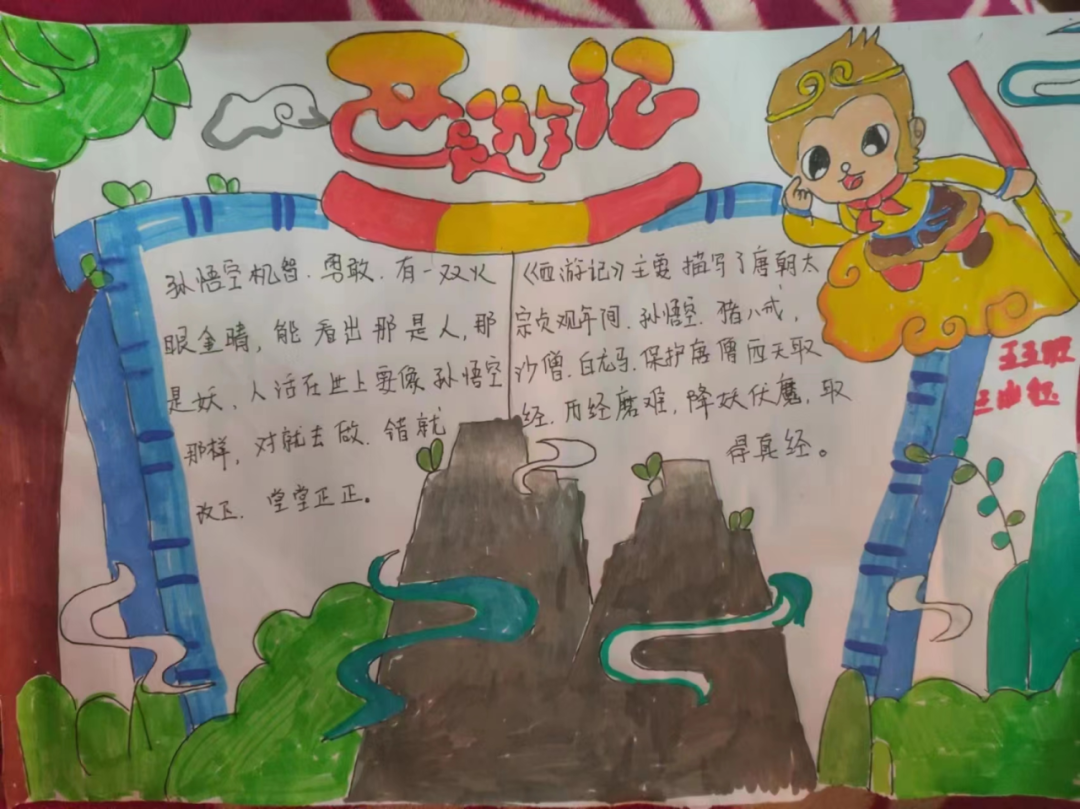 西游记
孙悟空机智.勇敢.有一双火
眼金睛,能看出那是人,那
是妖、人活在世上要像孙悟空
那样,对就去做.错就
改正.堂堂正正。
《西游记》主要描写了唐朝太
宗贞观年间.孙悟空.猪八戒,
沙僧.白龙马.保护唐僧西天取
经.历经磨难,降妖伏魔,取
得真经。